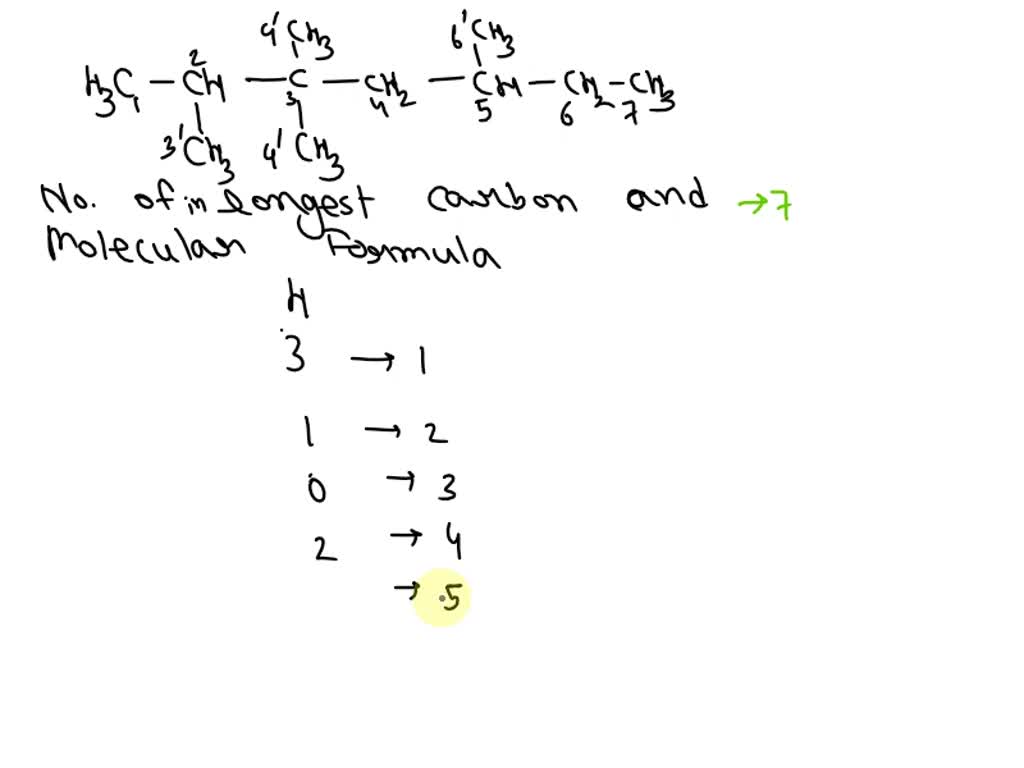 4'CH3 6'CH3
H3C1 — 2CH — C3 — CH2 4 — CH 5 — CH2 6 — CH3 7
3'CH3 4'CH3
No. of in longest carbon and → 7
Molecular Formula
H
3 → 1
1 → 2
0 → 3
2 → 4
→ 5